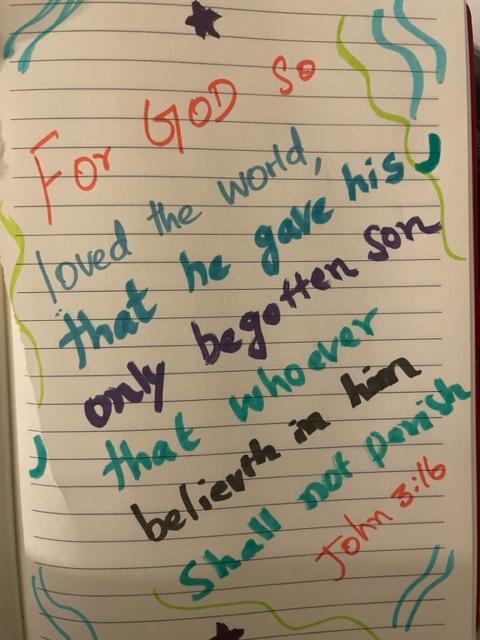 For GOD so
loved the world,
that he gave his
only begotten son
that whoever
believth in him
Shall not perish
John 3:16